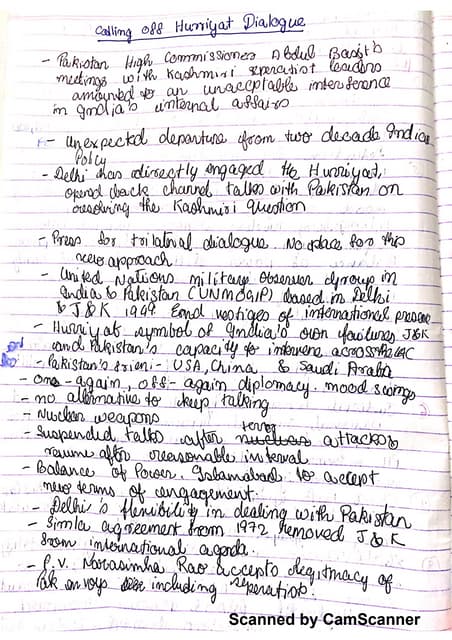 Calling off Hurriyat Dialogue
- Pakistan High Commissioner Abdul Basit's
meetings with Kashmiri seperatist leaders
amounted to an unacceptable interference
in India's internal affairs
- Unexpected departure from two decade India
Policy
- Delhi has directly engaged the Hurriyat,
opened back channel talks with Pakistan on
resolving the Kashmiri question
- Press for trilateral dialogue. No place for this
new approach
- United Nations military observer Group in
India & Pakistan (UNMOGIP) based in Delhi
& J&K 1949 End vestiges of international presence
- Hurriyat symbol of India's own failures J&K
and Pakistan's capacity to intervene across the LAC
- Pakistan's frieni- USA, China & Saudi Arabia
- One-again, off-again diplomacy. mood swings
- no alternative to keep talking
- Nuclear weapons
- Suspended talks after terror attacks &
resume after reasonable interval
- Balance of Power. Islamabad to accept
new terms of engagement.
- Delhi's flexibility in dealing with Pakistan
- Simla agreement from 1972 removed J&K
from international agenda.
- P.V. Narasimha Rao accepts legitimacy of
Pak envoys including seperatist.
Scanned by CamScanner